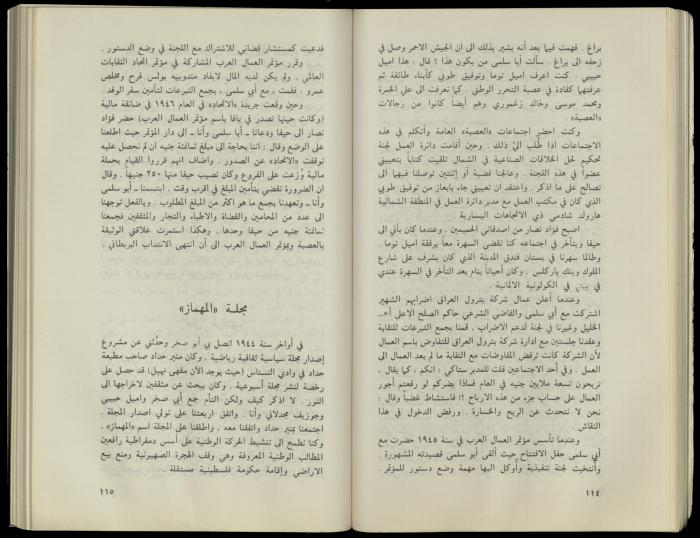 براغ . فهمت فيما بعد أنه يشير بذلك الى ان الجيش الاحمر وصل في
زحفه الى براغ . سألت أبا سلمى من يكون هذا ؟ قال : هذا اميل
حبيبي . كنت اعرف اميل توما وتوفيق طوبي كأبناء طائفة ثم
عرفتهما كقادة في عصبة التحرر الوطني . كما تعرفت الى علي الخمرة
ومحمد موسى وخالد زغموري وهم أيضا كانوا من رجالات
«العصبة» .
وكنت احضر اجتماعات «العصبة» العامة وأتكلم في هذه
الاجتماعات اذا طلب الي ذلك . وحين أقامت دائرة العمل لجنة
تحكيم لحل الخلافات الصناعية في الشمال تلقيت كتابا بتعييني
عضوا في هذه اللجنة . وعالجنا قضية أو إثنتين توصلنا فيهما الى
تصالح على ما اذكر . واعتقد ان تعييني جاء بايعاز من توفيق طوبي
الذي كان في مكتب العمل مع مدير دائرة العمل في المنطقة الشمالية
هارولد شادمي ذي الاتجاهات اليسارية .
اصبح فؤاد نصار من اصدقائي الحميمين . وعندما كان يأتي الى
حيفا ويتأخر في اجتماعه كنا نقضي السهرة معاً برفقة اميل توما .
وطالما سهرنا في بستان فندق المدينة الذي كان يشرف على شارع
الملوك وبنك باركلس . وكان أحياناً ينام بعد التأخر في السهرة عندي
في بيتي في الكولونية الالمانية .
وعندما أعلن عمال شركة بترول العراق اضرابهم الشهير
اشتركت مع أبي سلمى والقاضي الشرعي حاكم الصلح الاعلى أحمد
الخليل وغيرنا في لجنة لدعم الاضراب . قمنا بجمع التبرعات للنقابة
وعقدنا جلستين مع ادارة شركة بترول العراق للتفاوض باسم العمال
لأن الشركة كانت ترفض المفاوضات مع النقابة ما لم يعد العمال الى
العمل . وفي أحد الاجتماعين قلت للمدير ستاكي : انكم ، كما يقال ،
تربحون تسعة ملايين جنيه في العام فماذا يضركم لو رفعتم أجور
العمال على حساب جزء من هذه الارباح ؟! فاستشاط غضباً وقال :
نحن لا نتحدث عن الربح والخسارة . ورفض الدخول في هذا
النقاش .
وعندما تأسس مؤتمر العمال العرب في سنة ١٩٤٥ حضرت مع
أبي سلمى حفل الافتتاح حيث ألقى أبو سلمى قصيدته المشهورة .
وانتخبت لجنة تنفيذية وأوكل اليها مهمة وضع دستور للمؤتمر .
١١٤
فدعيت كمستشار قضائي للاشتراك مع اللجنة في وضع الدستور .
وقرر مؤتمر العمال العرب المشاركة في مؤتمر اتحاد النقابات
العالمي . ولم يكن لديه المال لايفاد مندوبيه بولس فرح ومخلص
عمرو . فقمت ، مع أبي سلمى ، بجمع التبرعات لتأمين سفر الوفد .
وحين وقعت جريدة «الاتحاد» في العام ١٩٤٦ في ضائقة مالية
(وكانت حينها تصدر في يافا باسم مؤتمر العمال العرب) حضر فؤاد
نصار الى حيفا ودعانا ـ أبا سلمى وأنا ـ الى دار المؤتمر حيث اطلعنا
على الوضع وقال : اننا بحاجة الى مبلغ ثمانمئة جنيه ان لم نحصل عليه
توقفت «الاتحاد» عن الصدور . واضاف انهم قرروا القيام بحملة
مالية وزعت على الفروع وكان نصيب حيفا منها ٢٥٠ جنيها . وقال
ان الضرورة تقضي بتأمين المبلغ في اقرب وقت . ابتسمنا ـ أبو سلمى
وأنا ـ وتعهدنا بجمع ما هو اكثر من المبلغ المطلوب . وبالفعل توجهنا
الى عدد من المحامين والقضاة والاطباء والتجار والمثقفين فجمعنا
ثمانمئة جنيه من حيفا وحدها . وهكذا استمرت علاقتي الوثيقة
بالعصبة وبمؤتمر العمال العرب الى أن انتهى الانتداب البريطاني .
مجلة «المهماز»
في أواخر سنة ١٩٤٤ اتصل بي أبو صخر وحدّثني عن مشروع
إصدار مجلة سياسية ثقافية رياضية . وكان منير حداد صاحب مطبعة
حداد في وادي النسناس (حيث يوجد الآن مقهى نبيل) قد حصل على
رخصة لنشر مجلة أسبوعية . وكان يبحث عن مثقفين لاخراجها الى
النور . لا اذكر كيف ولكن التأم جمع أبي صخر واميل حبيبي
وجوزيف مجدلاني وأنا . واتفق اربعتنا على تولي اصدار المجلة .
اجتمعنا بمنير حداد واتفقنا معه . واطلقنا على المجلة اسم «المهماز» .
وكنا نطمح الى تنشيط الحركة الوطنية على أسس دمقراطية رافعين
المطالب الوطنية المعروفة وهي وقف الهجرة الصهيونية ومنع بيع
الاراضي وإقامة حكومة فلسطينية مستقلة .
١١٥